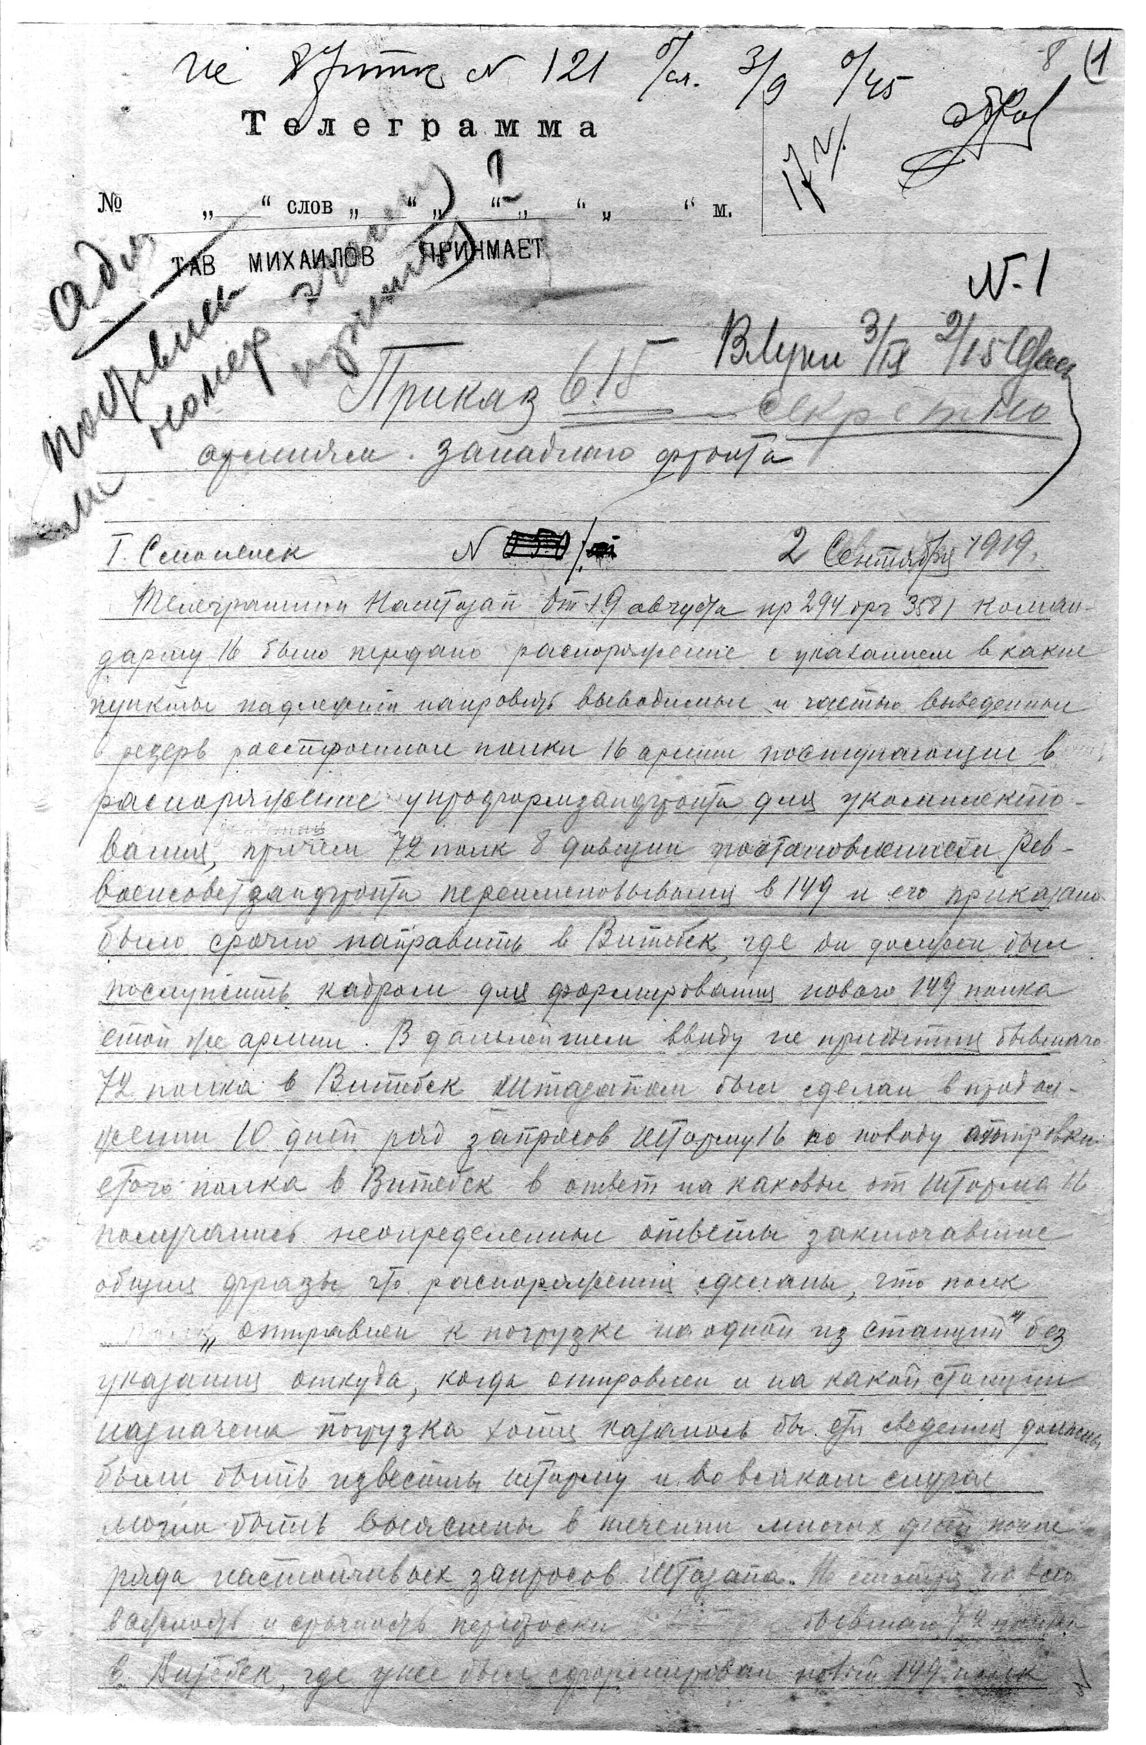 N 121 3/9 0/45
8 (1
Телеграмма
№ „ “ слов „ “ „ “ „ “ „ “ м.
ТАВ МИХАИЛОВ ПРИНМАЕТ
номер
N.1
ВЛуки 3/IX 2/15
Приказ 615 секретно
армиям западного фронта
Г. Смоленск N 2 Сентября 1919.
Телеграммой Наштазап от 19 августа нр 294 орг 3581 коман-
дарму 16 было передано распоряжение с указанием в какие
пункты надлежит направить выводимые и частью выведенные
в резерв расстроенные полки 16 армии поступающие в
распоряжение упродформзапфронта для укомплекто-
вания, причем 72 полк 8 дивизии постановлением Рев-
военсоветзапфронта переименовывался в 149 и его приказано
было срочно направить в Витебск, где он должен был
послужить кадром для формирования нового 149 полка
етой же армии. В дальнейшем ввиду не прибытия бывшаго
72 полка в Витебск Штазапом был сделан в продол-
жении 10 дней ряд запросов Штарму 16 по поводу отправки
етого полка в Витебск в ответ на каковые от Штарма 16
получались неопределенные ответы заключавшие
общия фразы что распоряжения сделаны, что полк
„отправлен к погрузке на одной из станций“ без
указания откуда, когда отправлен и на какой станции
назначена погрузка хотя казалось бы ети сведения должны
были быть известны Штарму и во всяком случае
могли быть выяснены в течении многих дней после
ряда настойчивых запросов Штазапа. Не смотря на всю
важность и срочность переброски бывшаго 72 полка
в Витебск, где уже был сформирован новый 149 полк